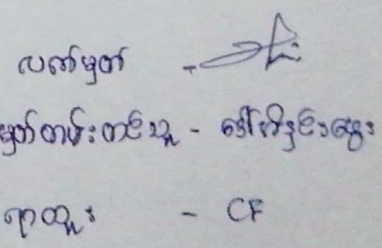 လက်မှတ် -
မှတ်တမ်းတင်သူ - ဒေါ်
ရာထူး - CF